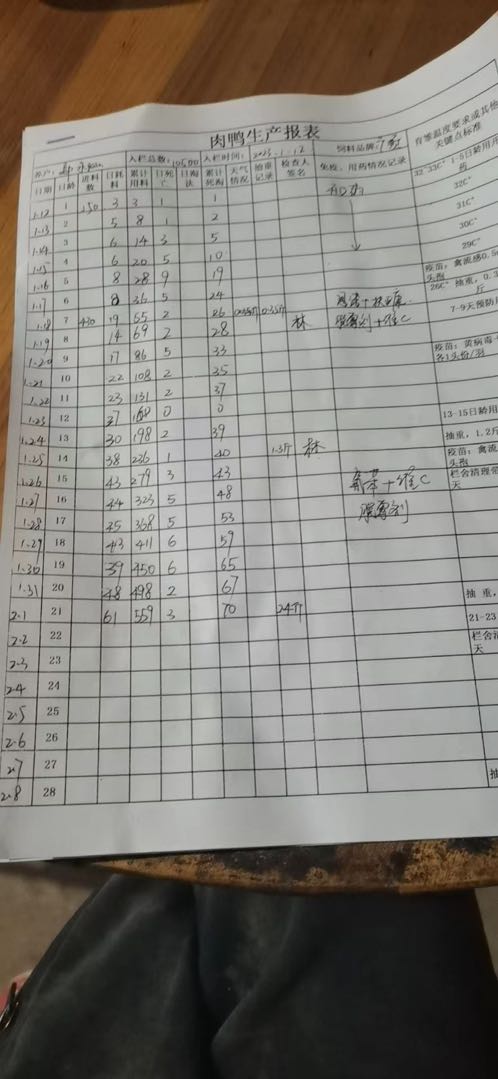 肉鸭生产报表
养户: 入栏总数:10500 入栏时间:2023.1.12 饲料品牌:
日期 日龄 进料数 日耗料 累计用料 日死亡 日淘汰 累计死淘 天气情况 抽重记录 检查人签名 免疫、用药情况记录 育雏温度要求或其他关键点标准
1.12 1 150 3 3 1 1 32-33C° 1-5日龄用
1.13 2 5 8 1 2 32C°
1.14 3 6 14 3 5 31C°
1.15 4 6 20 5 10 30C°
1.16 5 8 28 9 19 29C°
1.17 6 8 36 5 24 疫苗:禽流感0.5 头孢
1.18 7 430 19 55 2 26 林 +维C 26C° 抽重,0.3 斤
1.19 8 14 69 2 28 7-9天预防
1.20 9 17 86 5 33 疫苗:黄病毒 各1头份/羽
1.21 10 22 108 2 35
1.22 11 23 131 2 37
1.23 12 37 168 0 0
1.24 13 30 198 2 39 13-15日龄用
1.25 14 38 236 1 40 1.3斤 林 抽重,1.2斤
1.26 15 43 279 3 43 疫苗:禽流 头孢
1.27 16 44 323 5 48 +维C 栏舍清理 天
1.28 17 45 368 5 53
1.29 18 43 411 6 59
1.30 19 39 450 6 65
1.31 20 48 498 2 67
2.1 21 61 559 3 70 2.4斤 抽重,
2.2 22 21-23 栏舍 天
2.3 23
2.4 24
2.5 25
2.6 26
2.7 27
2.8 28 抽